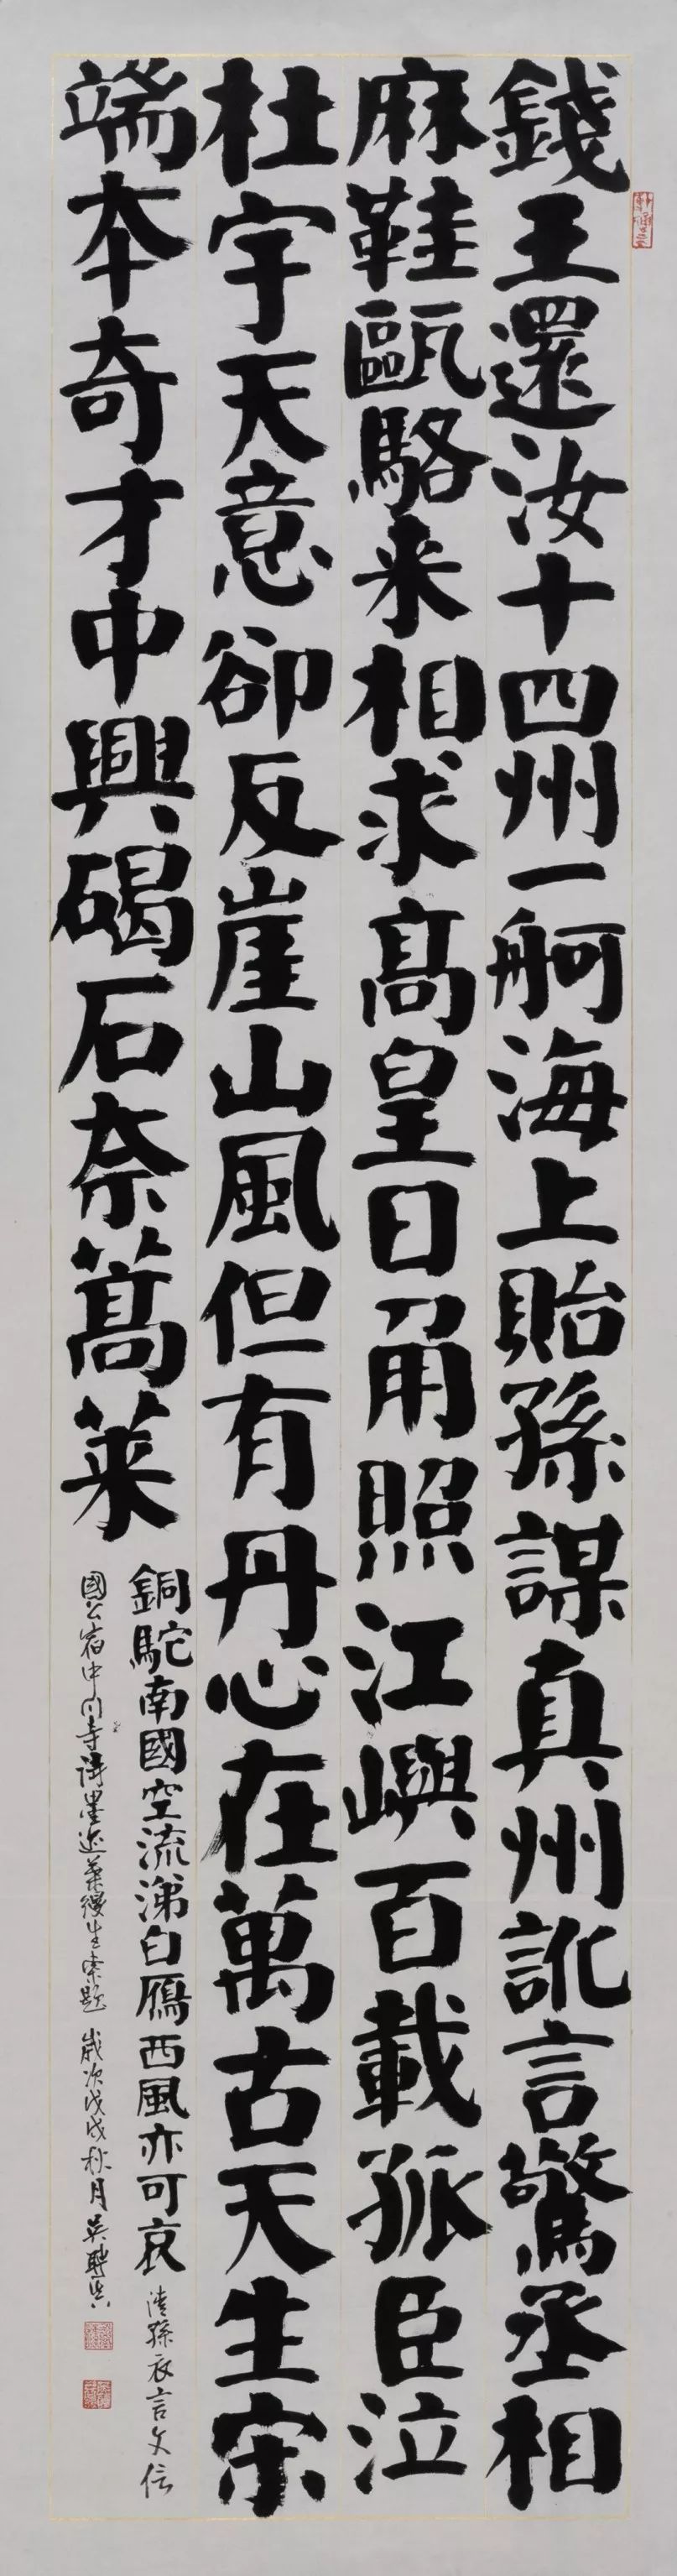 錢王還汝十四州一舸海上貽孫謀真州訛言驚丞相
麻鞋甌駱来相求高皇日角照江嶼百載孤臣泣
杜宇天意卻反崖山風但有丹心在萬古天生宋
端本奇才中興碣石奈蒿莱
銅駝南國空流涕白鴈西風亦可哀 清孫衣言文信
國公宿中川寺詩墨迹葉縵生索題 歲次戊戌秋月吳聘真